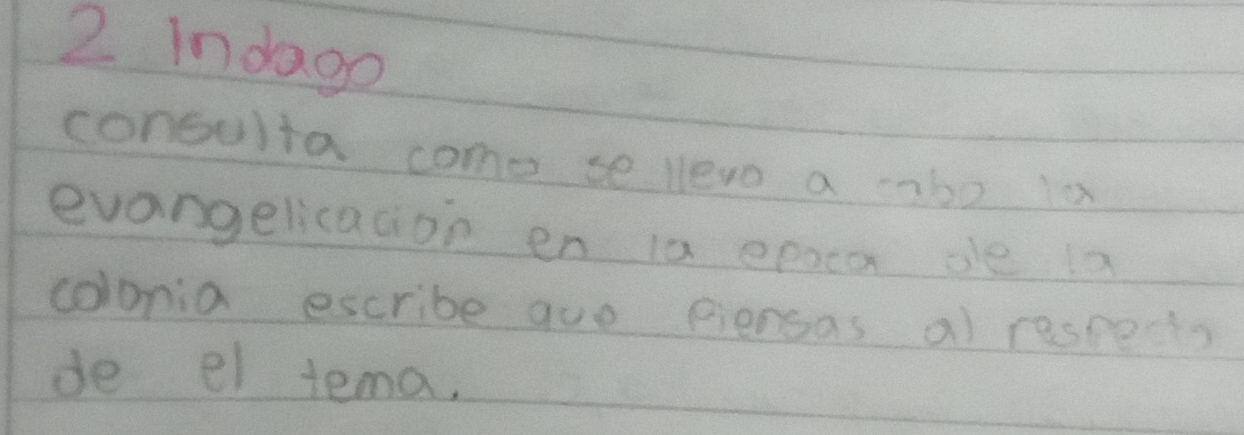 2 Indago
consulta como se llevo a cabo la
evangelicación en la epoca de la
colonia escribe que piensas al respecto
de el tema.